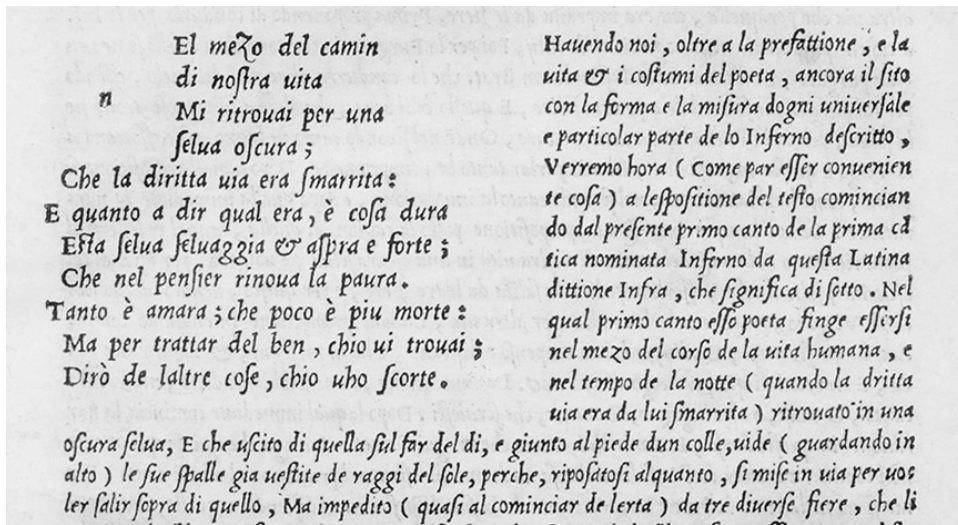 El mezo del camin
di nostra uita
n
Mi ritrouai per una
selua oscura;
Che la diritta uia era smarrita:
E quanto a dir qual era, è cosa dura
Esta selua seluaggia & aspra e forte;
Che nel pensier rinoua la paura.
Tanto è amara; che poco è piu morte:
Ma per trattar del ben, chio ui trouai;
Dirò de laltre cose, chio uho scorte.
Hauendo noi, oltre a la prefattione, e la
uita & i costumi del poeta, ancora il sito
con la forma e la misura dogni uniuersale
e particolar parte de lo Inferno descritto,
Verremo hora ( Come par esser conuenien
te cosa ) a le spositione del testo comincian
do dal presente primo canto de la prima cā
tica nominata Inferno da questa Latina
dittione Infra, che significa di sotto. Nel
qual primo canto esso poeta finge essersi
nel mezo del corso de la uita humana, e
nel tempo de la notte ( quando la dritta
uia era da lui smarrita ) ritrouato in una
oscura selua, E che uscito di quella sul far del di, e giunto al piede dun colle, uide ( guardando in
alto ) le sue spalle gia uestite de raggi del sole, perche, riposatosi alquanto, si mise in uia per uo=
ler salir sopra di quello, Ma impedito ( quasi al cominciar de lerta ) da tre diuerse fiere, che li